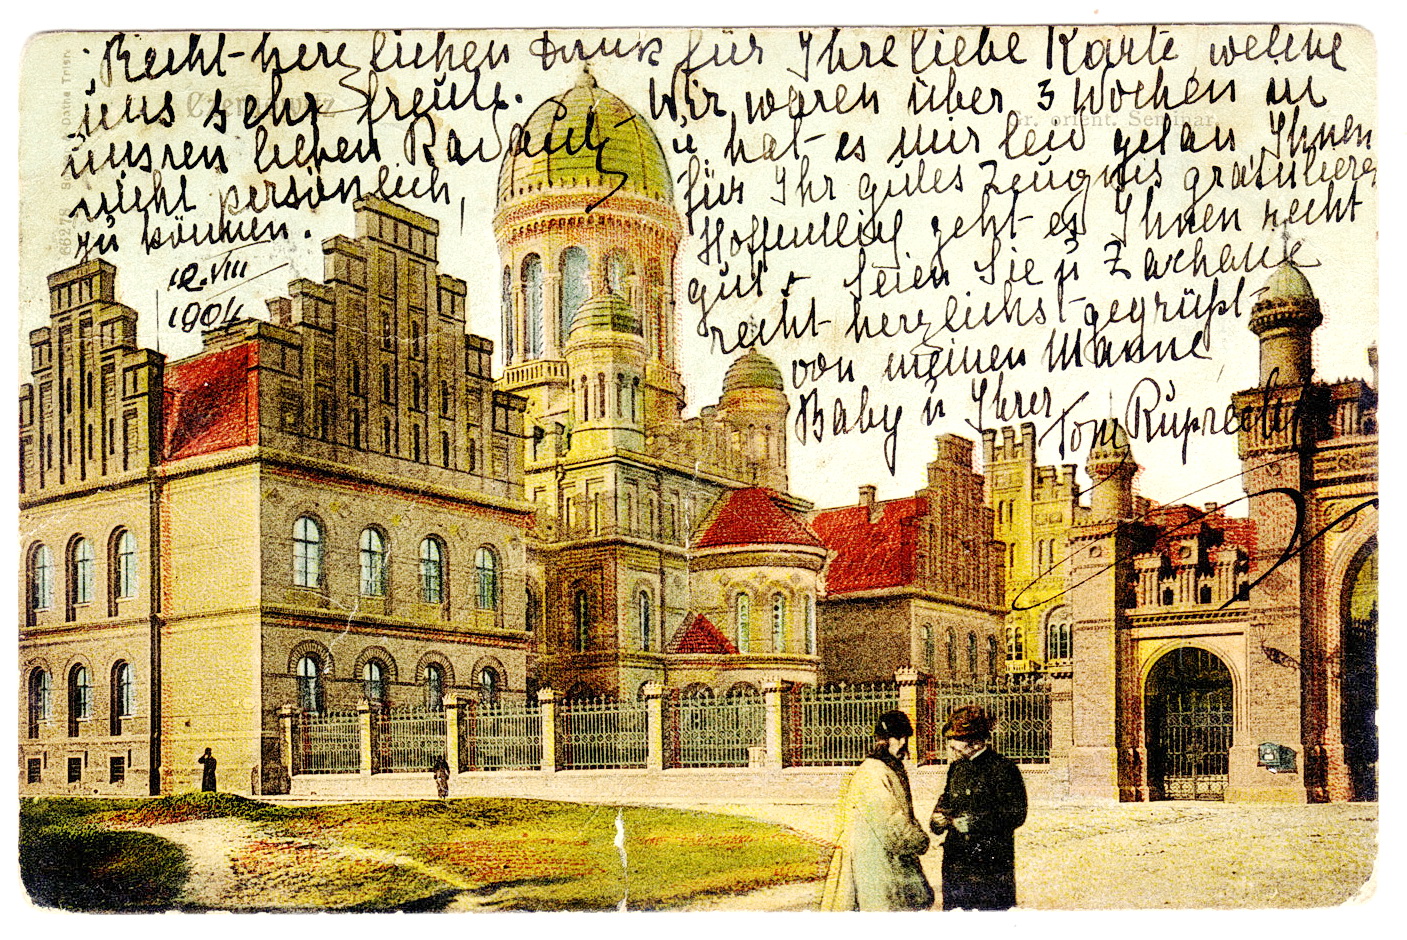 Recht herzlichen Dank für Ihre liebe Karte welche
uns sehr freute. Wir waren über 3 Wochen in
unsren lieben Radautz u. hat es mir leid getan Ihnen
nicht persönlich, für Ihr gutes Zeugnis gratulieren
zu können. Hoffentlich geht es Ihnen recht
gut. Seien Sie u
recht herzlichst gegrüßt
von meinen Manne,
Baby u Ihrer Toni Ruprecht
12.VIII
1904
Czernowitz
Gr. orient. Seminar.